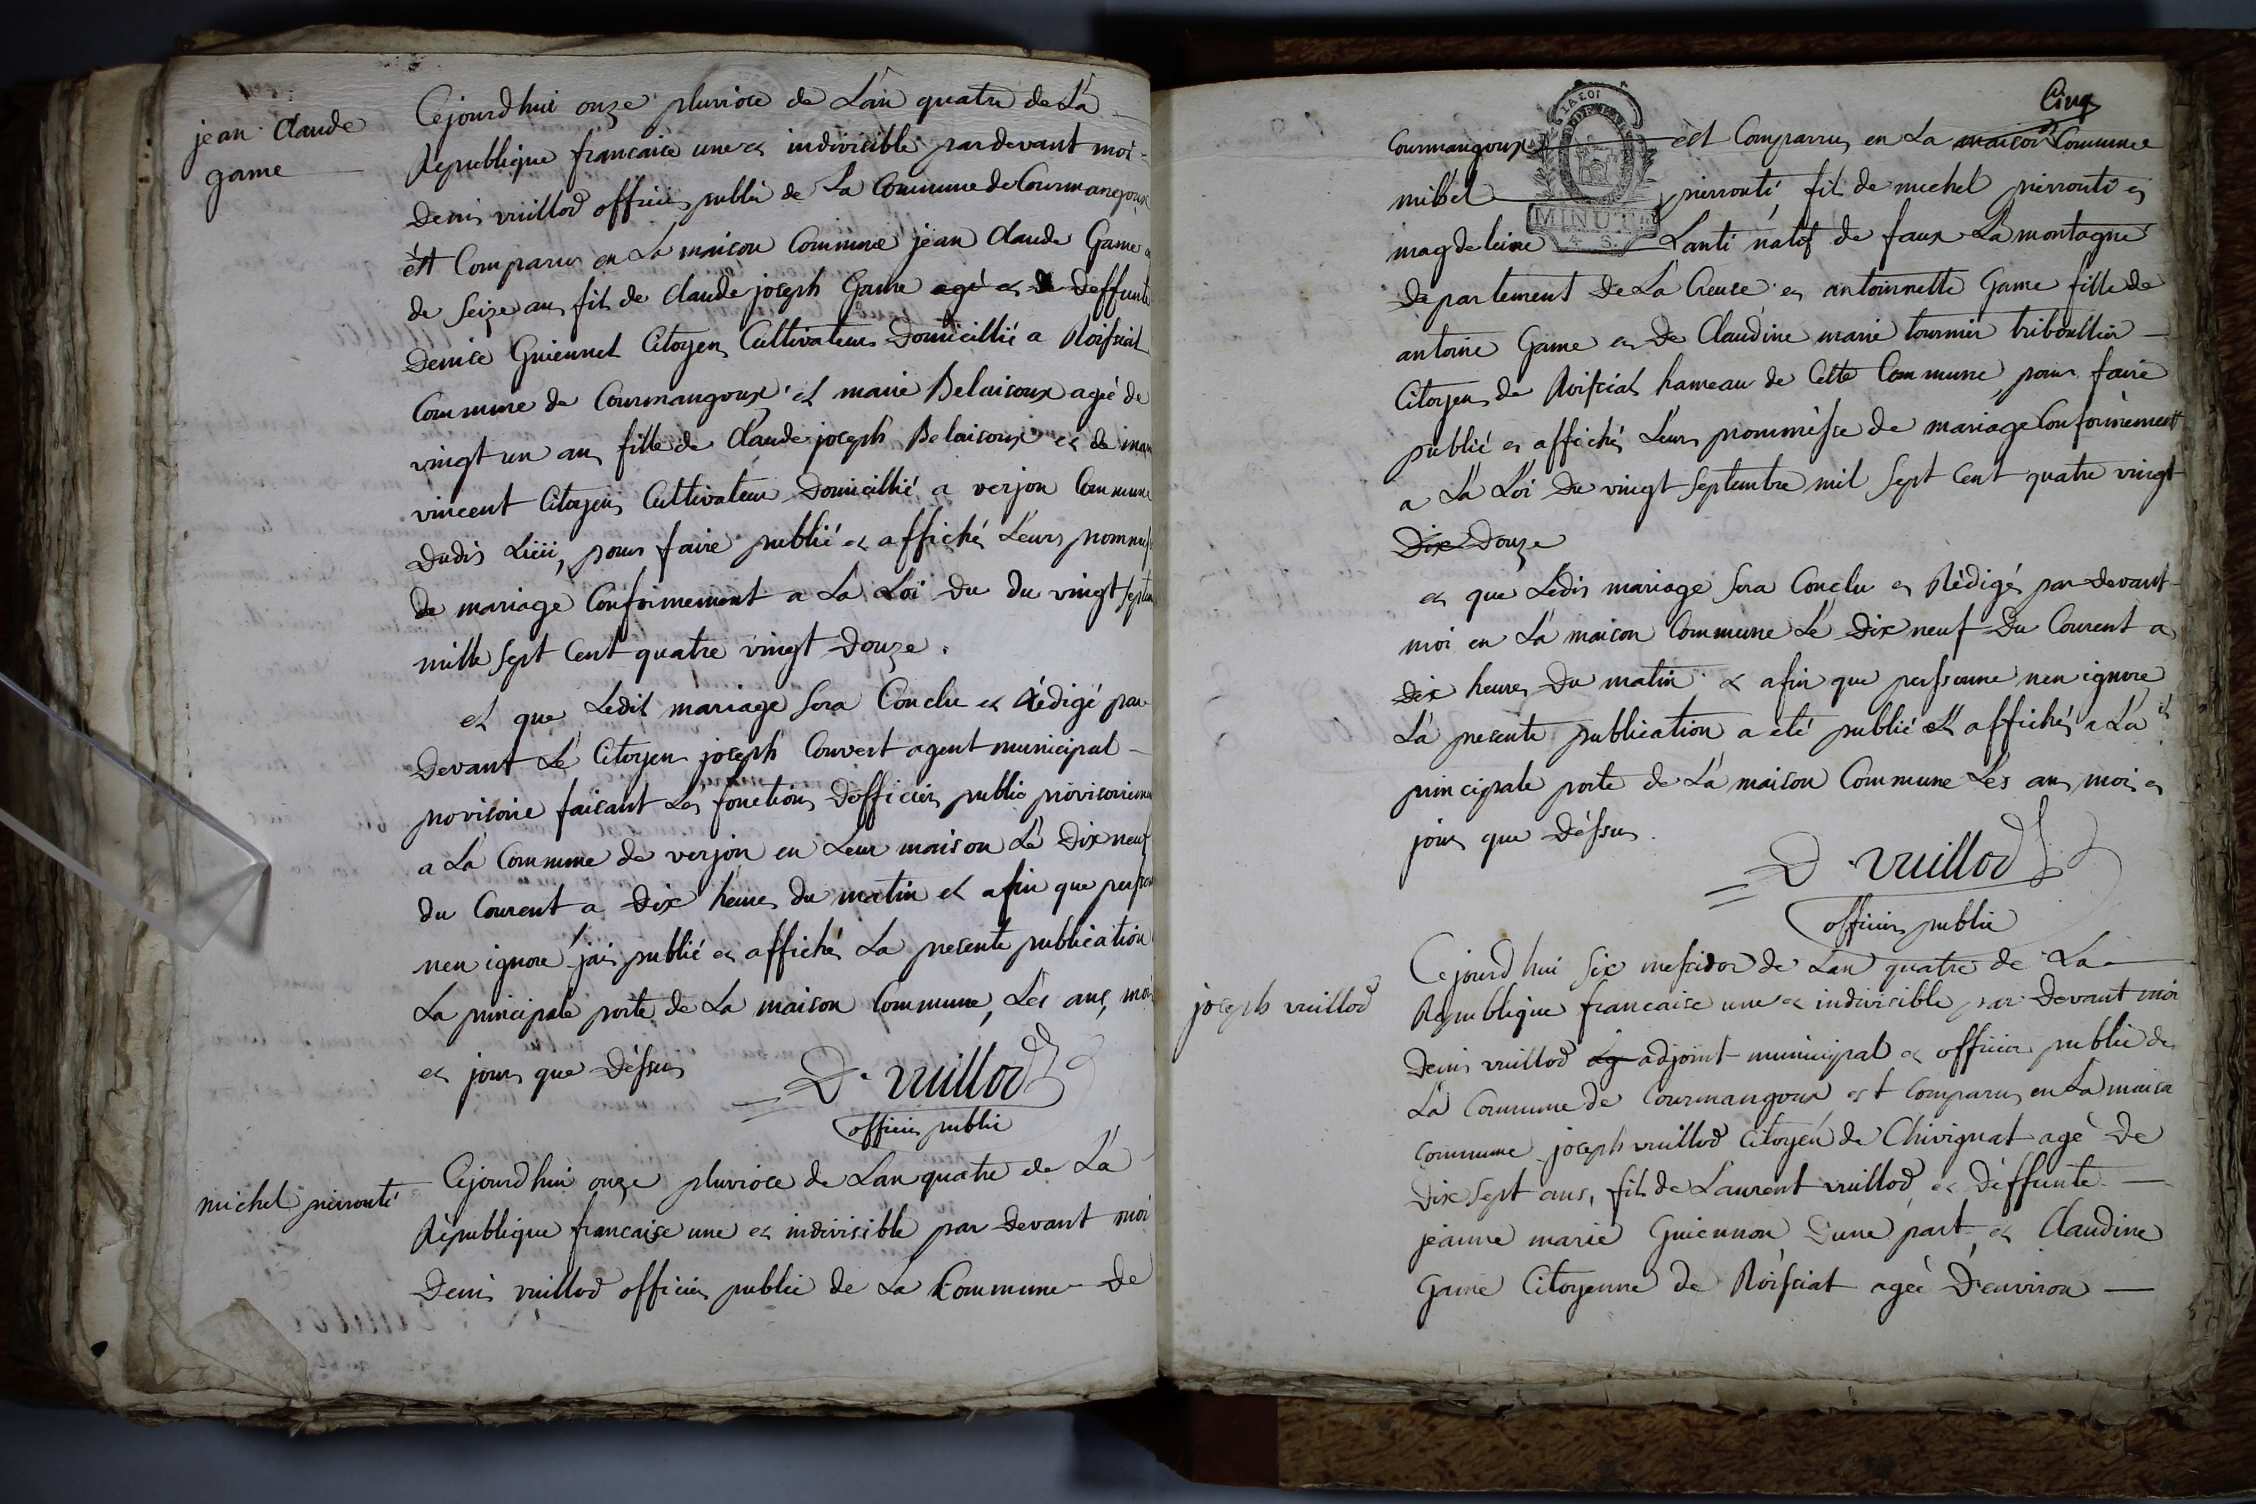 jean Claude
game
Cejourdhui onze pluviose de L'an quatre de La
Republique francaise une et indivisible pardevant moi
Denis vuillod officier public de La Commune de Courmangoux
èst Comparus en La maison Commune jean Claude Game
de Seize ans fils de Claude joseph Game agé et De Deffunte
Denise Guiennet Citoyens Cultivateurs Domicillié a Roissiat
Commune de Courmangoux et marie Belaisoux agée de
vingt un ans fille de Claude joseph Belaisoux et de
vincent Citoyens Cultivateurs Domicillié a verjon Commune
Dudis Liëü, pour faire publié et affiché Leurs
de mariage Conformement a La Loi Du du vingt
mille Sept Cent quatre vingt Douze.
et que Ledit mariage Sera Conclu et Rédigé par
Devant Le Citoyen joseph Convert agent municipal
provisoire faisant Les fonctions D'officier public
a La Commune de verjon en Leur maison Le Dix neuf
du Courent a Dix heures du matin et afin que
nen ignore jais publié et affiché La presente publication
La principale porte de La maison Commune, Les ans,
et jours que Déssus
D. vuillod
officier public
michel pierronté
Cejourdhui onze pluviose de Lan quatre de La
Republique francaise une et indivisible par Devant moi
Denis vuillod officier public de La Commune De
Cinq
Courmangoux èst Comparrus en La maison Commune
LA LOI
MINUTE
michel pierronté, fils de michel pierronté et
magdeleine Lanti natif de faux La montagne
Departement De La Creuse et antoinnette Game fille de
antoine Game et De Claudine marie tournier triboullier
Citoyens de Roissiat hameau de Cette Commune pour faire
publié et affiché Leurs prommèsse de mariage Conformement
a La Loi Du vingt Septembre mil Sept Cent quatre vingt
Dix Douze
et que Ledis mariage Sera Conclu et Rédigé par Devant
moi en La maison Commune Le Dix neuf Du Courent a
Dix heures Du matin et afin que perssonne nen ignore
La presente publication a eté publié et affiché a La
principale porte de La maison Commune Les ans mois et
jours que Déssus.
D. vuillod
officier public
joseph vuillod
Cejourd'hui Six messidor de Lan quatre de La
Republique francaise une et indivisible par Devant moi
Denis vuillod ag adjoint municipal et officier public de
La Commune de Courmangoux est Comparus en La maison
Commune joseph vuillod Citoyen de Chivignat agé De
Dix Sept ans, fils de Laurent vuillod et Déffunte
jeanne marie Guiennon D'une part et Claudine
Game Citoyenne de Roissiat agée D'environ